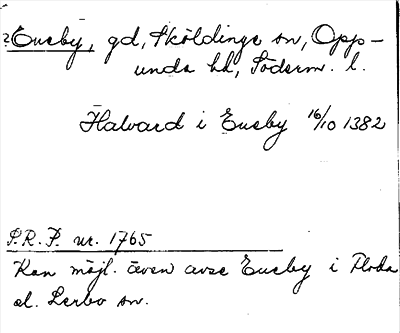 ? Eneby, gd, Sköldinge sn, Opp-
unda hd, Söderm. l.
Halvard i Eneby 16/10 1382
S.R.P. nr. 1765
Kan möjl. även avse Eneby i Floda
el. Lerbo sn.